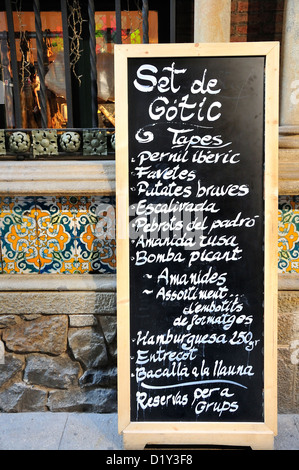 Set de
Gòtic
6 Tapes
• Pernil ibèric
• Favetes
• Patates braves
• Escalivada
• Pebrots del padró
• Amanida rusa
• Bomba picant
~ Amanides
~ Assortiment
d'embotits
de formatges
• Hamburguesa 250gr
• Entrecot
• Bacallà a la llauna
Reserves per a
Grups